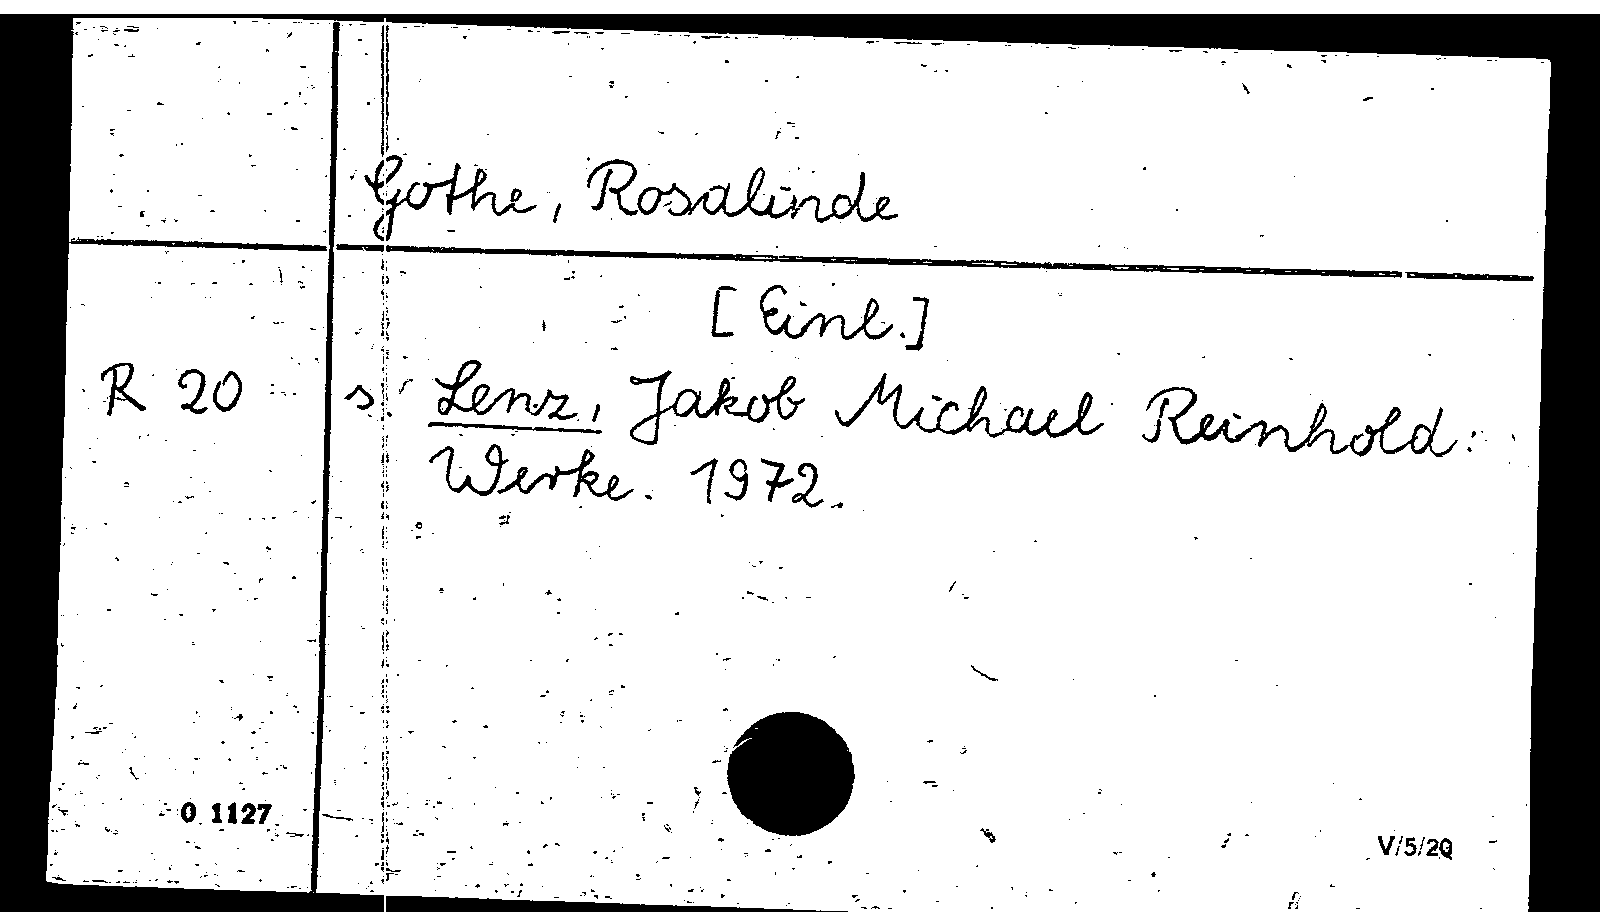 Gothe, Rosalinde
[Einl.]
R 20 s. Lenz, Jakob Michael Reinhold:
Werke. 1972.
0 1127
V/5/20